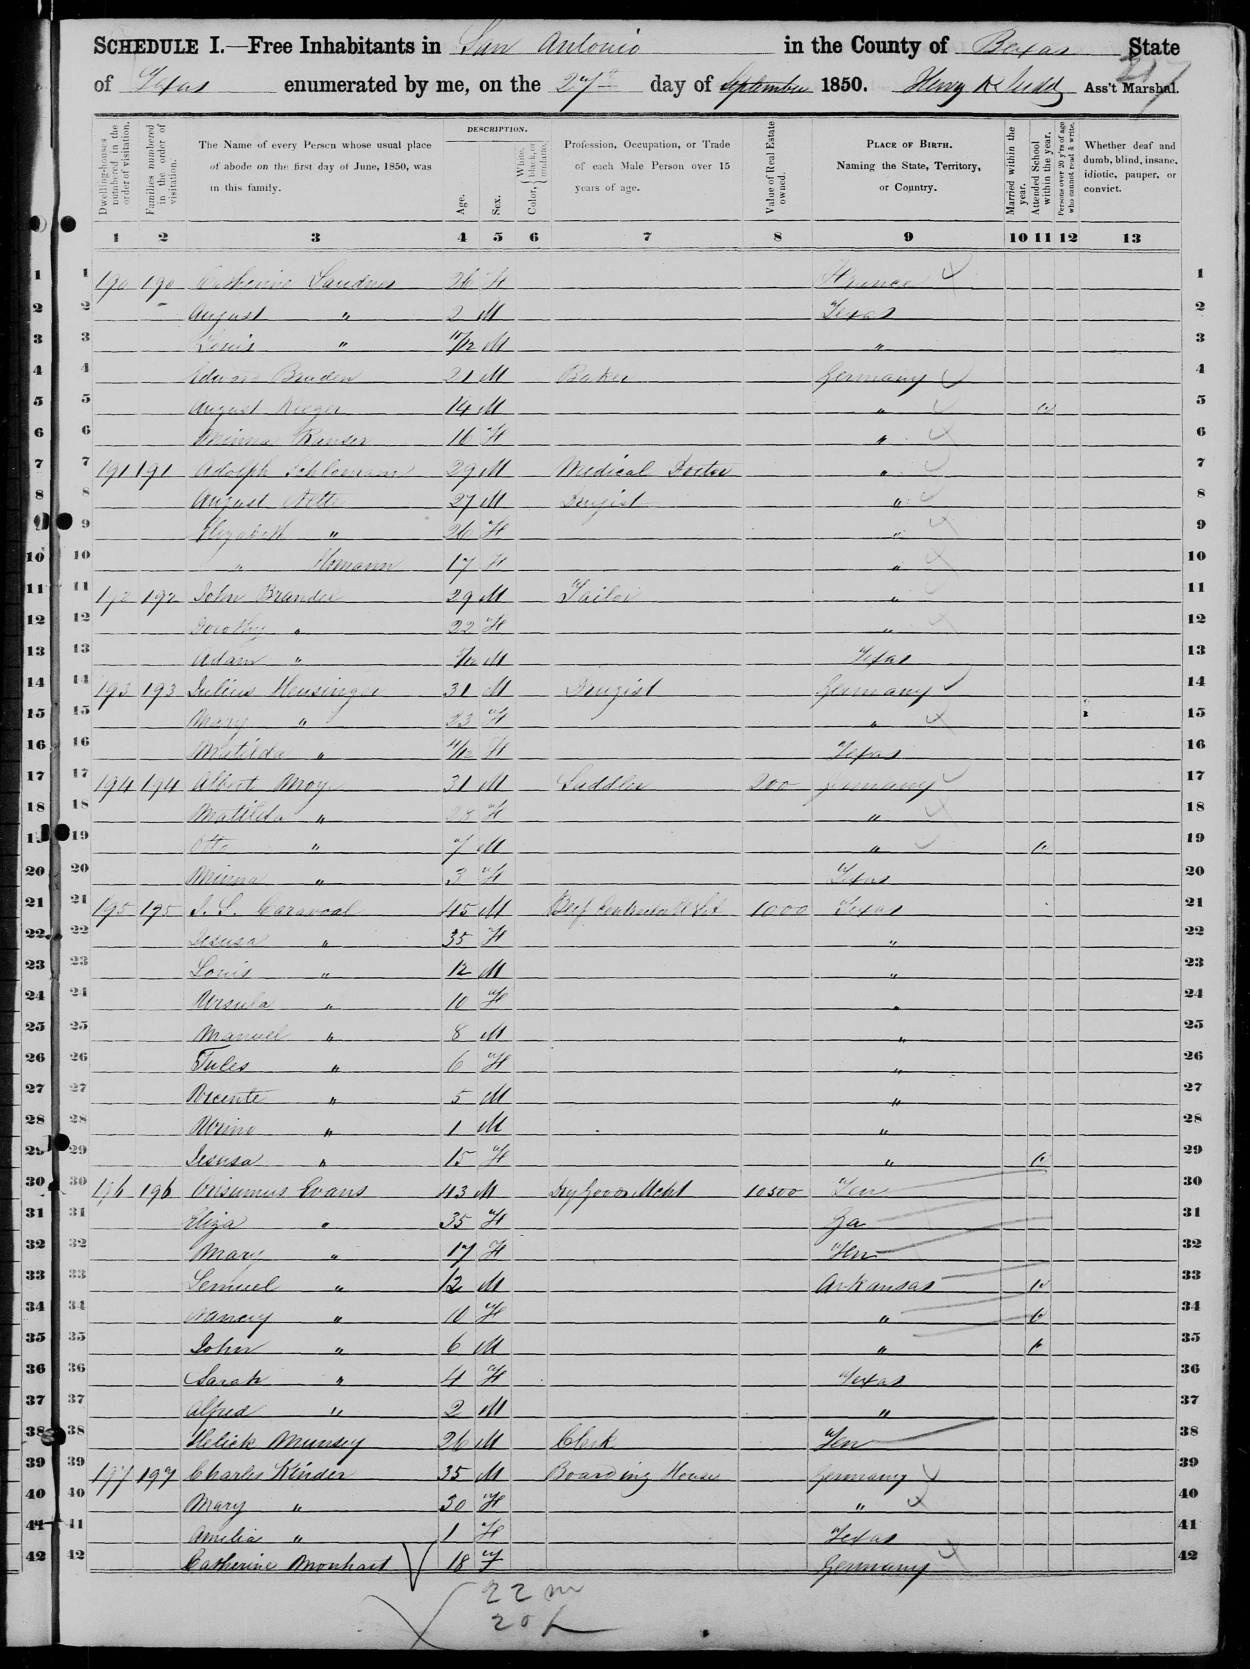 SCHEDULE I.—Free Inhabitants in San Antonio in the County of Bexar State
of Texas enumerated by me, on the 27th day of September 1850. Henry Ass't Marshal.
217
Dwelling-houses numbered in the order of visitation.
Families numbered in the order of visitation.
The Name of every Person whose usual place of abode on the first day of June, 1850, was in this family.
DESCRIPTION.
Age.
Sex.
Color, { White, black, or mulatto.
Profession, Occupation, or Trade of each Male Person over 15 years of age.
Value of Real Estate owned.
PLACE OF BIRTH. Naming the State, Territory, or Country.
Married within the year.
Attended School within the year.
Persons over 20 y'rs of age who cannot read & write.
Whether deaf and dumb, blind, insane, idiotic, pauper, or convict.
1 2 3 4 5 6 7 8 9 10 11 12 13
1 1 190 190 Catherine Sandner 26 F France 1
2 2 August " 2 M Texas 2
3 3 Louis " 11/12 M " 3
4 4 Edward Braden 21 M Baker Germany 4
5 5 August Rieger 14 M " 5
6 6 Minna 16 F " 6
7 7 191 191 Adolph 29 M Medical Doctor " 7
8 8 August Nette 27 M Drugist " 8
9 9 Elizabeth " 26 F " 9
10 10 " 17 F " 10
11 11 192 192 John Brandes 29 M Tailor " 11
12 12 Dorothy " 22 F " 12
13 13 Adam " M Texas 13
14 14 193 193 Julius Heusinger 31 M Drugist Germany 14
15 15 Mary " 23 F " 15
16 16 Matilda " F Texas 16
17 17 194 194 Albert Moye 31 M Saddler 200 Germany 17
18 18 Matilda " F " 18
19 19 Otto " 7 M " 19
20 20 Minna " 3 F Texas 20
21 21 195 195 J. L. Caravoal 45 M Beef Contractor 1000 Texas 21
22 22 Jesusa " 35 F " 22
23 23 Louis " 12 M " 23
24 24 Ursula " 10 F " 24
25 25 Manuel " 8 M " 25
26 26 Jules " 6 F " 26
27 27 Vicente " 5 M " 27
28 28 " 1 M " 28
29 29 Jesusa " 15 F " 29
30 30 196 196 Onisumus Evans 43 M Dry Goods Mcht 10500 Ten 30
31 31 Eliza " 35 F Ga 31
32 32 Mary " 17 F Ten 32
33 33 Lemuel " 12 M Arkansas 33
34 34 Nancy " 10 F " 34
35 35 John " 6 M " 35
36 36 Sarah " 4 F Texas 36
37 37 Alfred " 2 M " 37
38 38 Helick Munsey 26 M Clerk Ten 38
39 39 197 197 Charles Kinder 35 M Boarding House Germany 39
40 40 Mary " 30 F " 40
41 41 Amelia " 1 F Texas 41
42 42 Catherine Monhart 18 F Germany 42
22 m
20 f